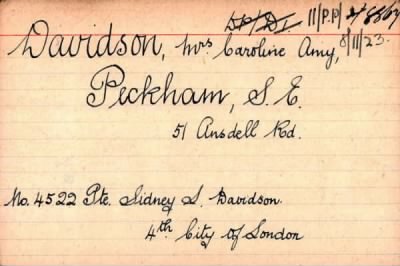 11/P.P/
Davidson, Mrs Caroline Amy, 8/11/23.
Peckham, S.E.
51 Ansdell Rd.
No. 4522 Pte. Sidney S. Davidson.
4th City of London